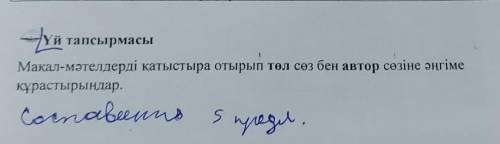 Үй тапсырмасы
Мақал-мәтелдерді қатыстыра отырып төл сөз бен автор сөзіне әңгіме
құрастырыңдар.
Составить 5 предл.